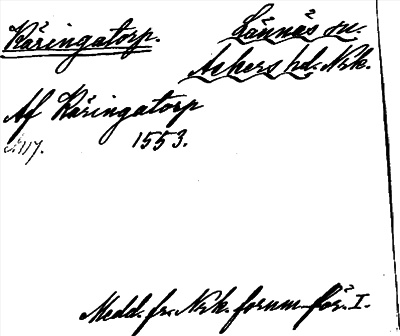 Käringatorp.
Lännäs sn.
Askers hd. Nrk.
Af Käringatorp
1553.
Medd. fr. Nrk. fornm. för. I.